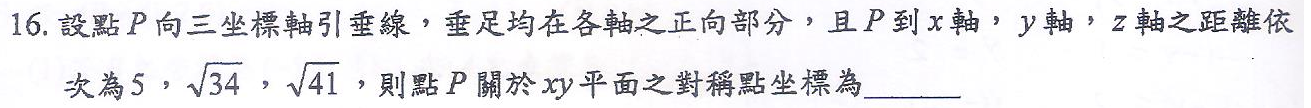 16. 設點 P 向三坐標軸引垂線，垂足均在各軸之正向部分，且 P 到 x 軸，y 軸，z 軸之距離依
次為 5，√34，√41，則點 P 關於 xy 平面之對稱點坐標為______